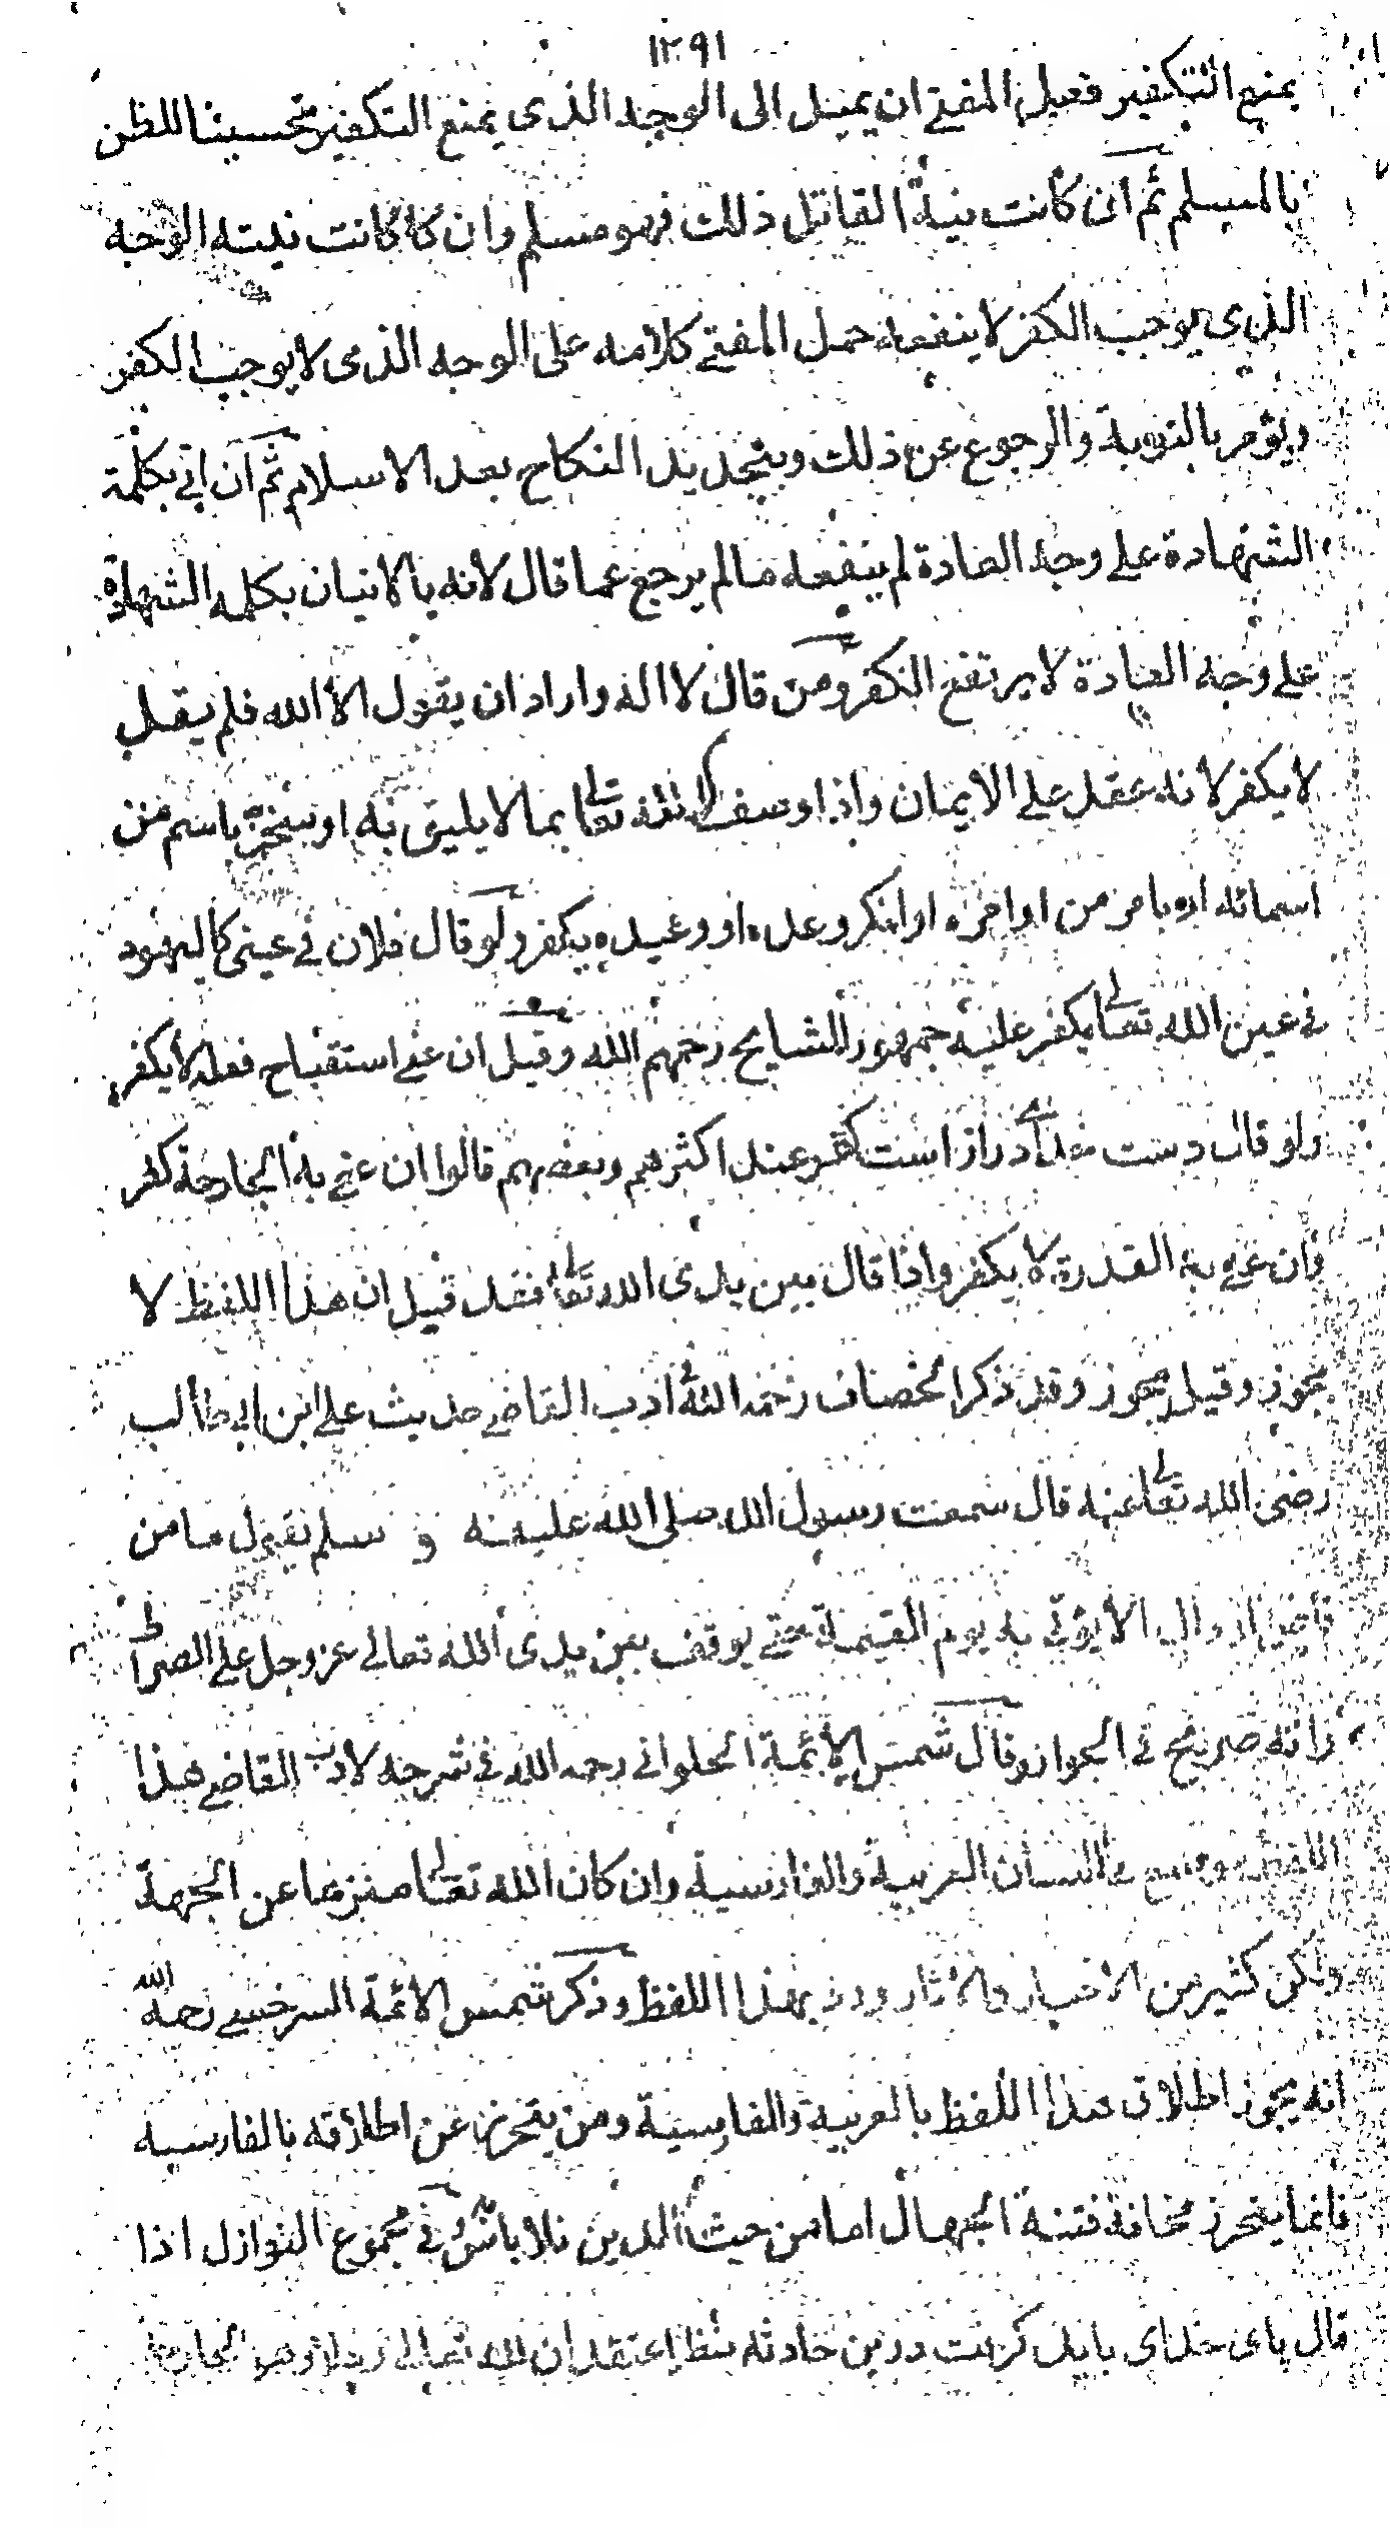 ١٢٩١
يمنع التكفير فعلى المفتي ان يميل الى الوجه الذى يمنع التكفير تحسينا للظن
بالمسلم ثم ان كانت نية القائل ذلك فهو مسلم وان كا كانت نيته الوجه
الذى يوجب الكفر لا ينفعه حمل المفتي كلامه على الوجه الذى لا يوجب الكفر
ويؤمر بالتوبة والرجوع عن ذلك وبتجديد النكاح بعد الاسلام ثم ان اتى بكلمة
الشهادة على وجه العادة لم ينفعه مالم يرجع عما قال لانه بالاتيان بكلمه الشهادة
على وجه العادة لا يرتفع الكفر ومن قال لا اله واراد ان يقول الا الله فلم يقل
لا يكفر لانه عقد على الايمان واذا وصف الله تعالى بما لا يليق به او سخر باسم من
اسمائه او بامر من اوامره او انكر وعده او وعيده يكفر ولو قال فلان في عينى كاليهود
في عين الله تعالى يكفر عليه جمهور المشايخ رحمهم الله وقيل ان عنى استقباح فعله لا يكفر
ولو قال دست خداى دراز است كفر عند اكثرهم وبعضهم قالوا ان عنى به الجارحة كفر
وان عنى به القدرة لا يكفر واذا قال بين يدى الله تعالى فقد قيل ان هذا اللفظ لا
يجوز وقيل يجوز وقد ذكر الخصاف رحمه الله ادب القاضي حديث على ابن ابي طالب
رضى الله تعالى عنه قال سمعت رسول الله صلى الله عليه و سلم يقول ما من
وال الا يؤتى به يوم القيمة حتى يوقف بين يدى الله تعالى عز وجل على الصراط
وانه صريح في الجواز وقال شمس الائمة الحلوانى رحمه الله في شرحه لادب القاضي هذا
اللفظ موسع في اللسان العربية والفارسية وان كان الله تعالى منزها عن الجهة
ولكن كثير من الاخبار والآثار ورد بهذا اللفظ وذكر شمس الائمة السرخسي رحمه الله
انه يجوز اطلاق هذا اللفظ بالعربية والفارسية ومن يتحرز عن اطلاقه بالفارسيه
فانما يتحرز مخافة فتنة الجهال اما من حيث الدين فلا باس وفي مجموع النوازل اذا
قال پاى خداى بايد كرفت درين حادثه ينظر اعتقد ان لله تعالى